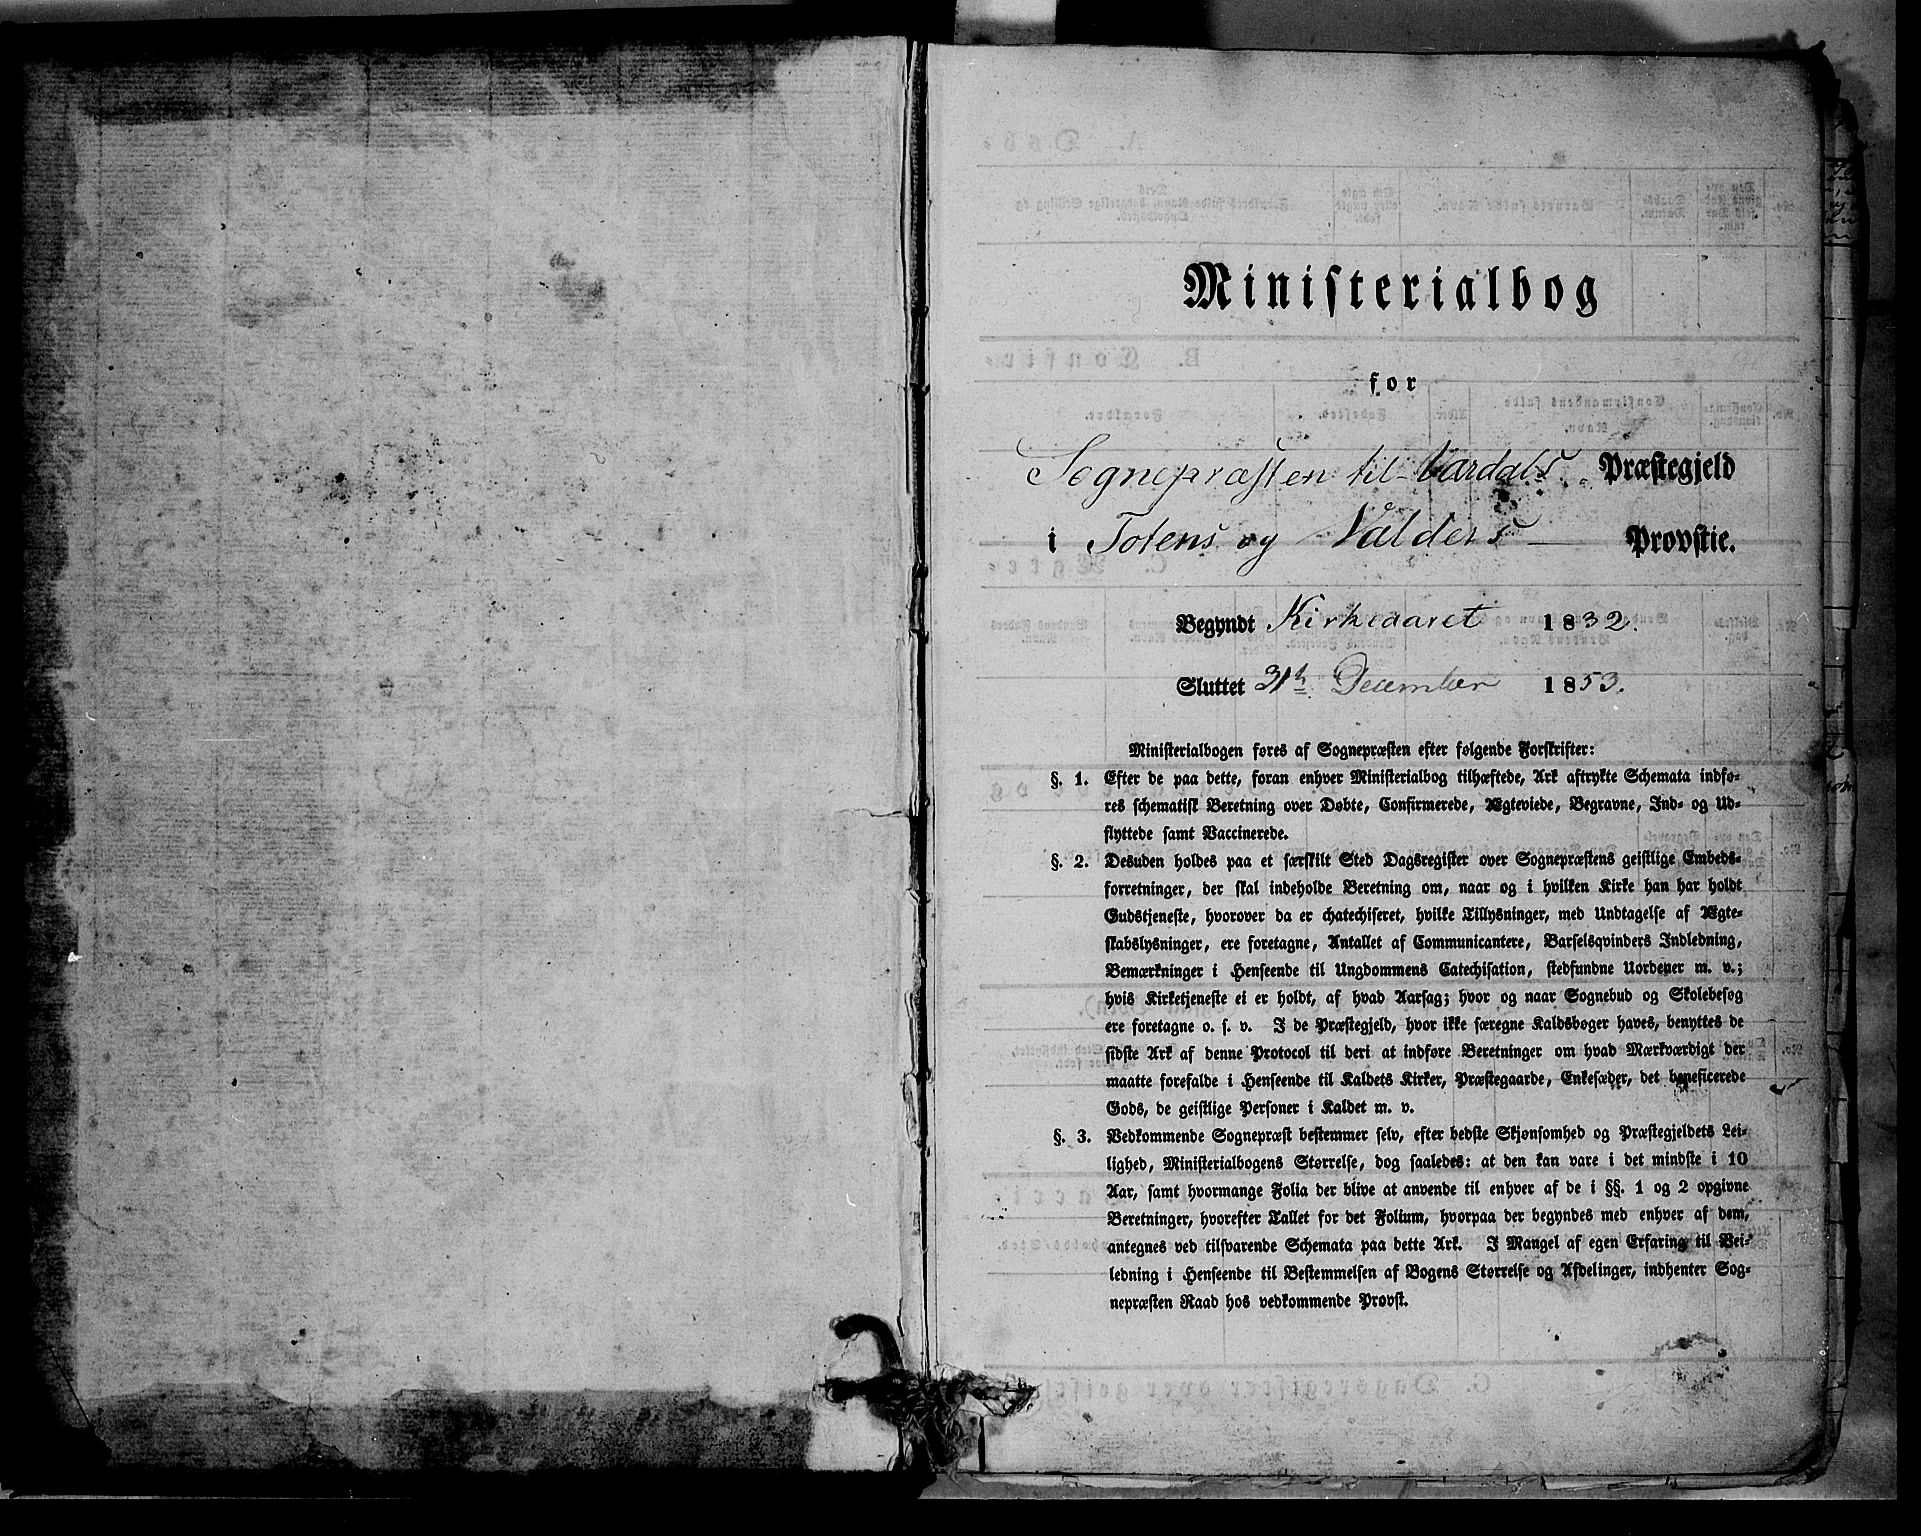 Ministerialbog
for
Sognepræsten til Vardals Præstegjeld
i Totens og Valders Provstie.
Begyndt Kirkeaaret 1832.
Sluttet 31te December 1853.
Ministerialbogen føres af Sognepræsten efter følgende Forskrifter:
§. 1. Efter de paa dette, foran enhver Ministerialbog tilhæftede, Ark aftrykte Schemata indfø-
res schematisk Beretning over Døbte, Confirmerede, Ægteviede, Begravne, Ind- og Ud-
flyttede samt Vaccinerede.
§. 2. Desuden holdes paa et særskilt Sted Dagsregister over Sognepræstens geistlige Embeds-
forretninger, der skal indeholde Beretning om, naar og i hvilken Kirke han har holdt
Gudstjeneste, hvorover da er chatechiseret, hvilke Tillysninger, med Undtagelse af Ægte-
skabslysninger, ere foretagne, Antallet af Communicantere, Barselsqvinders Indledning,
Bemærkninger i Henseende til Ungdommens Catechisation, stedfundne Uordener m. v.;
hvis Kirketjeneste ei er holdt, af hvad Aarsag; hvor og naar Sognebud og Skolebesøg
ere foretagne o. s. v. I de Præstegjeld, hvor ikke særegne Kaldsbøger haves, benyttes de
sidste Ark af denne Protocol til deri at indføre Beretninger om hvad Mærkværdigt der
maatte forefalde i Henseende til Kaldets Kirker, Præstegaarde, Enkesæder, det beneficerede
Gods, de geistlige Personer i Kaldet m. v.
§. 3. Vedkommende Sognepræst bestemmer selv, efter bedste Skjønsomhed og Præstegjeldets Lei-
lighed, Ministerialbogens Størrelse, dog saaledes: at den kan vare i det mindste i 10
Aar, samt hvormange Folia der blive at anvende til enhver af de i §§. 1 og 2 opgivne
Beretninger, hvorefter Tallet for det Folium, hvorpaa der begyndes med enhver af dem,
antegnes ved tilsvarende Schemata paa dette Ark. I Mangel af egen Erfaring til Vei-
ledning i Henseende til Bestemmelsen af Bogens Størrelse og Afdelinger, indhenter Sog-
nepræsten Raad hos vedkommende Provst.